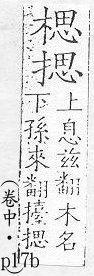 楒
揌
上息兹翻木名
下孫來翻擡揌
(卷中・
p17b